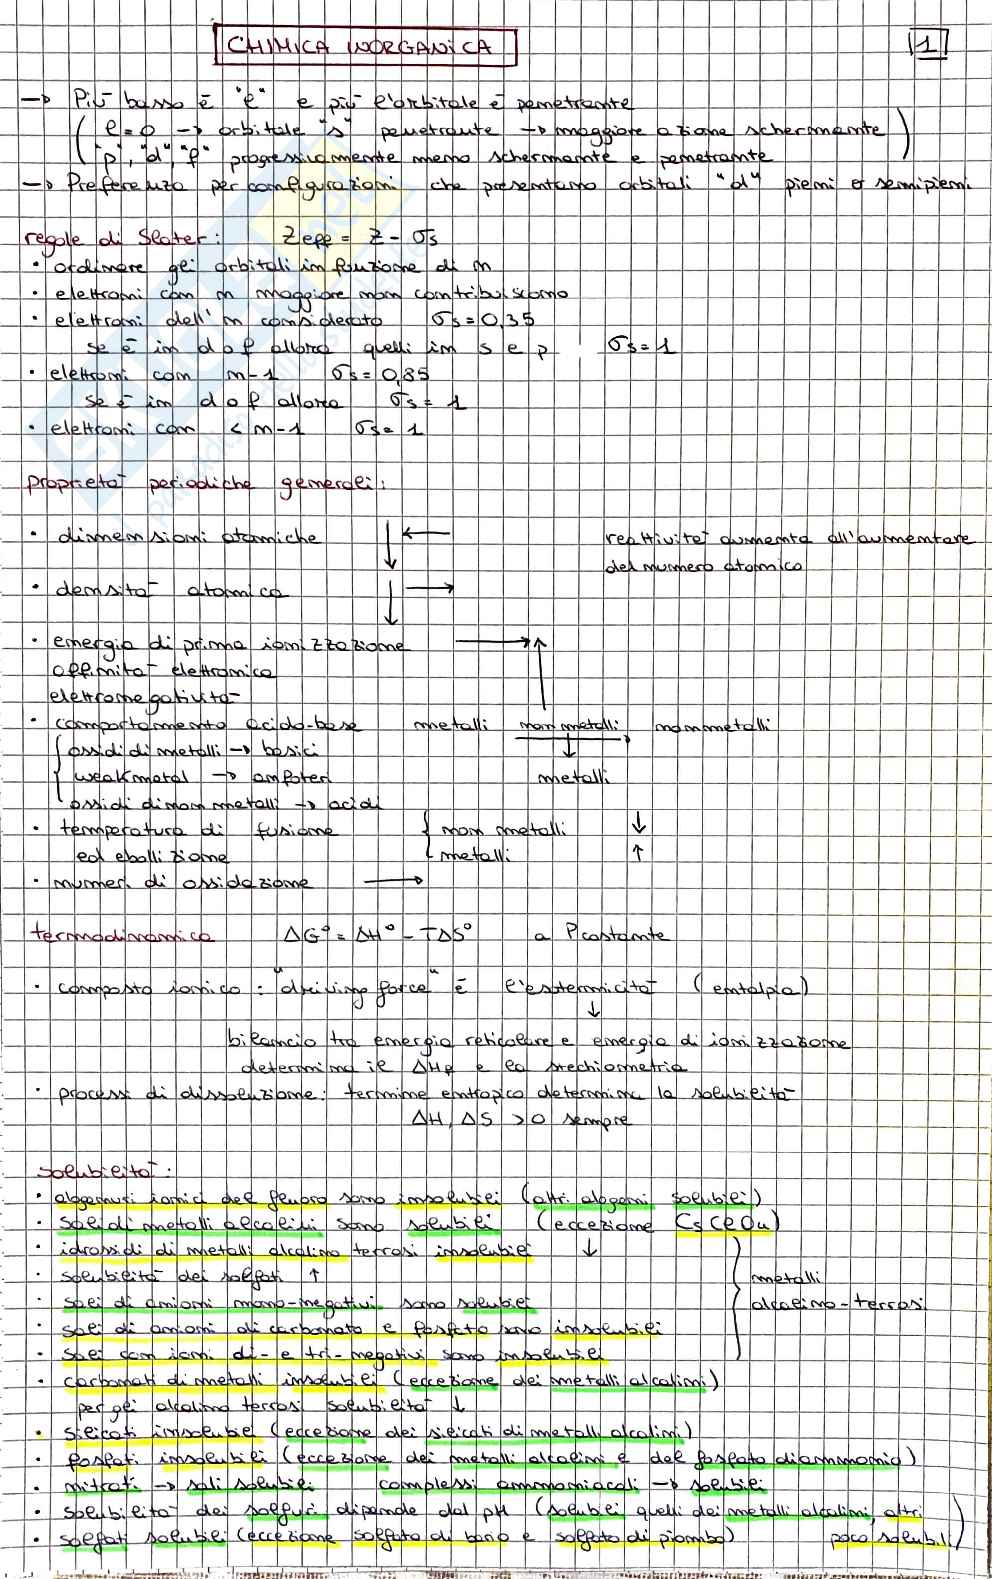 CHIMICA INORGANICA
1
→ Più basso è "l" e più l'orbitale è penetrante
( l=0 → orbitale "s" penetrante → maggiore azione schermante )
"p", "d", "f" progressivamente meno schermante e penetrante
→ Preferenza per configurazioni che presentano orbitali "d" pieni o semipieni
regole di Slater: Zeff = Z - σs
• ordinare gli orbitali in funzione di n
• elettroni con n maggiore non contribuiscono
• elettroni dell'n considerato σs=0,35
se è in d o f allora quelli in s e p σs=1
• elettroni con n-1 σs=0,85
se è in d o f allora σs=1
• elettroni con < n-1 σs=1
proprietà periodiche generali:
• dimensioni atomiche ↓ ← reattività aumenta all'aumentare
del numero atomico
• densità atomica ↓ →
• energia di prima ionizzazione → ↑
affinità elettronica
elettronegatività
• comportamento acido-base metalli nonmetalli nonmetalli
ossidi di metalli → basici ↓
weak metal → anfoteri metalli
ossidi di non metalli → acidi
• temperatura di fusione { non metalli ↓
ed ebollizione metalli ↑
• numeri di ossidazione →
termodinamica ΔG°= ΔH° - TΔS° a P costante
• composto ionico: "driving force" è l'esotermicità (entalpia)
↓
bilancio tra energia reticolare e energia di ionizzazione
determina il ΔHf e la stechiometria
• processi di dissoluzione: termine entropico determina la solubilità
ΔH, ΔS >0 sempre
solubilità:
• alogenuri ionici del fluoro sono insolubili (altri alogeni solubili)
• sali di metalli alcalini sono solubili (eccezione CsClO4)
• idrossidi di metalli alcalino terrosi insolubili ↓
• solubilità dei solfati ↑ metalli
• sali di anioni mono-negativi sono solubili alcalino-terrosi
• sali di anioni di carbonato e fosfato sono insolubili
• sali con ioni di- e tri-negativi sono insolubili
• carbonati di metalli insolubili (eccezione dei metalli alcalini)
per gli alcalino terrosi solubilità ↓
• silicati insolubili (eccezione dei silicati di metalli alcalini)
• fosfati insolubili (eccezione dei metalli alcalini e del fosfato diammonio)
• nitrati → sali solubili complessi ammoniacali → solubili
• solubilità dei solfuri dipende dal pH (solubili quelli dei metalli alcalini, altri
poco solubili)
• solfati solubili (eccezione solfato di bario e solfato di piombo)